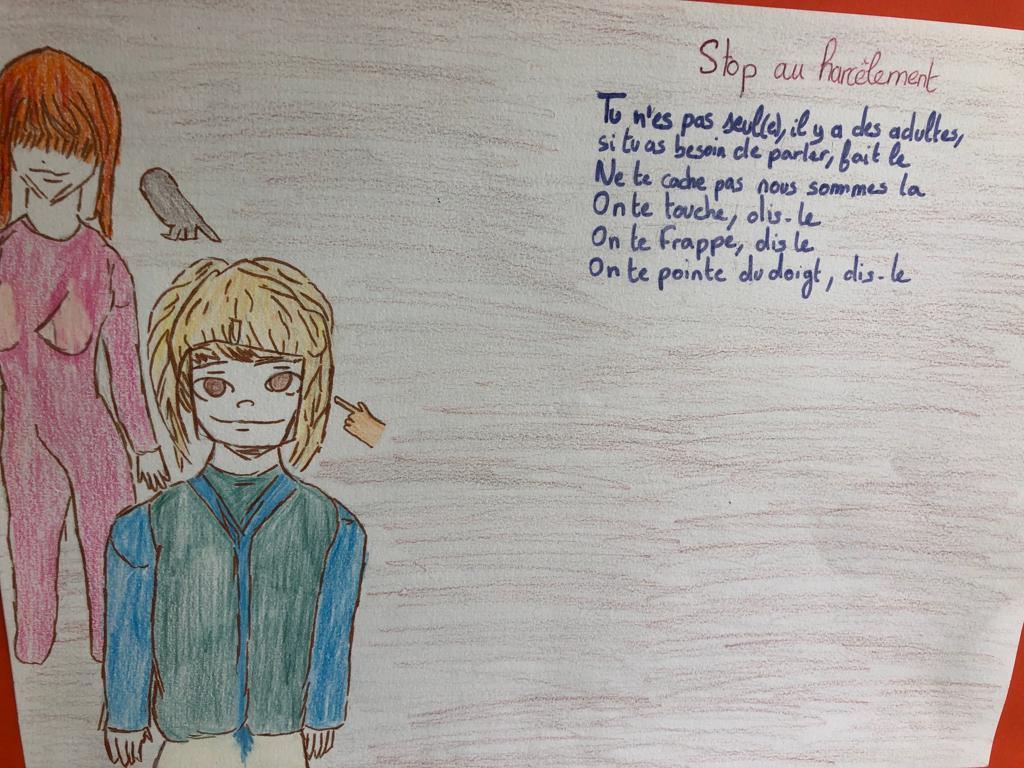 Stop au harcèlement
Tu n'es pas seul(e), il y a des adultes,
si tu as besoin de parler, fait le
Ne te cache pas nous sommes la
On te touche, dis-le
On te Frappe, dis le
On te pointe du doigt, dis-le